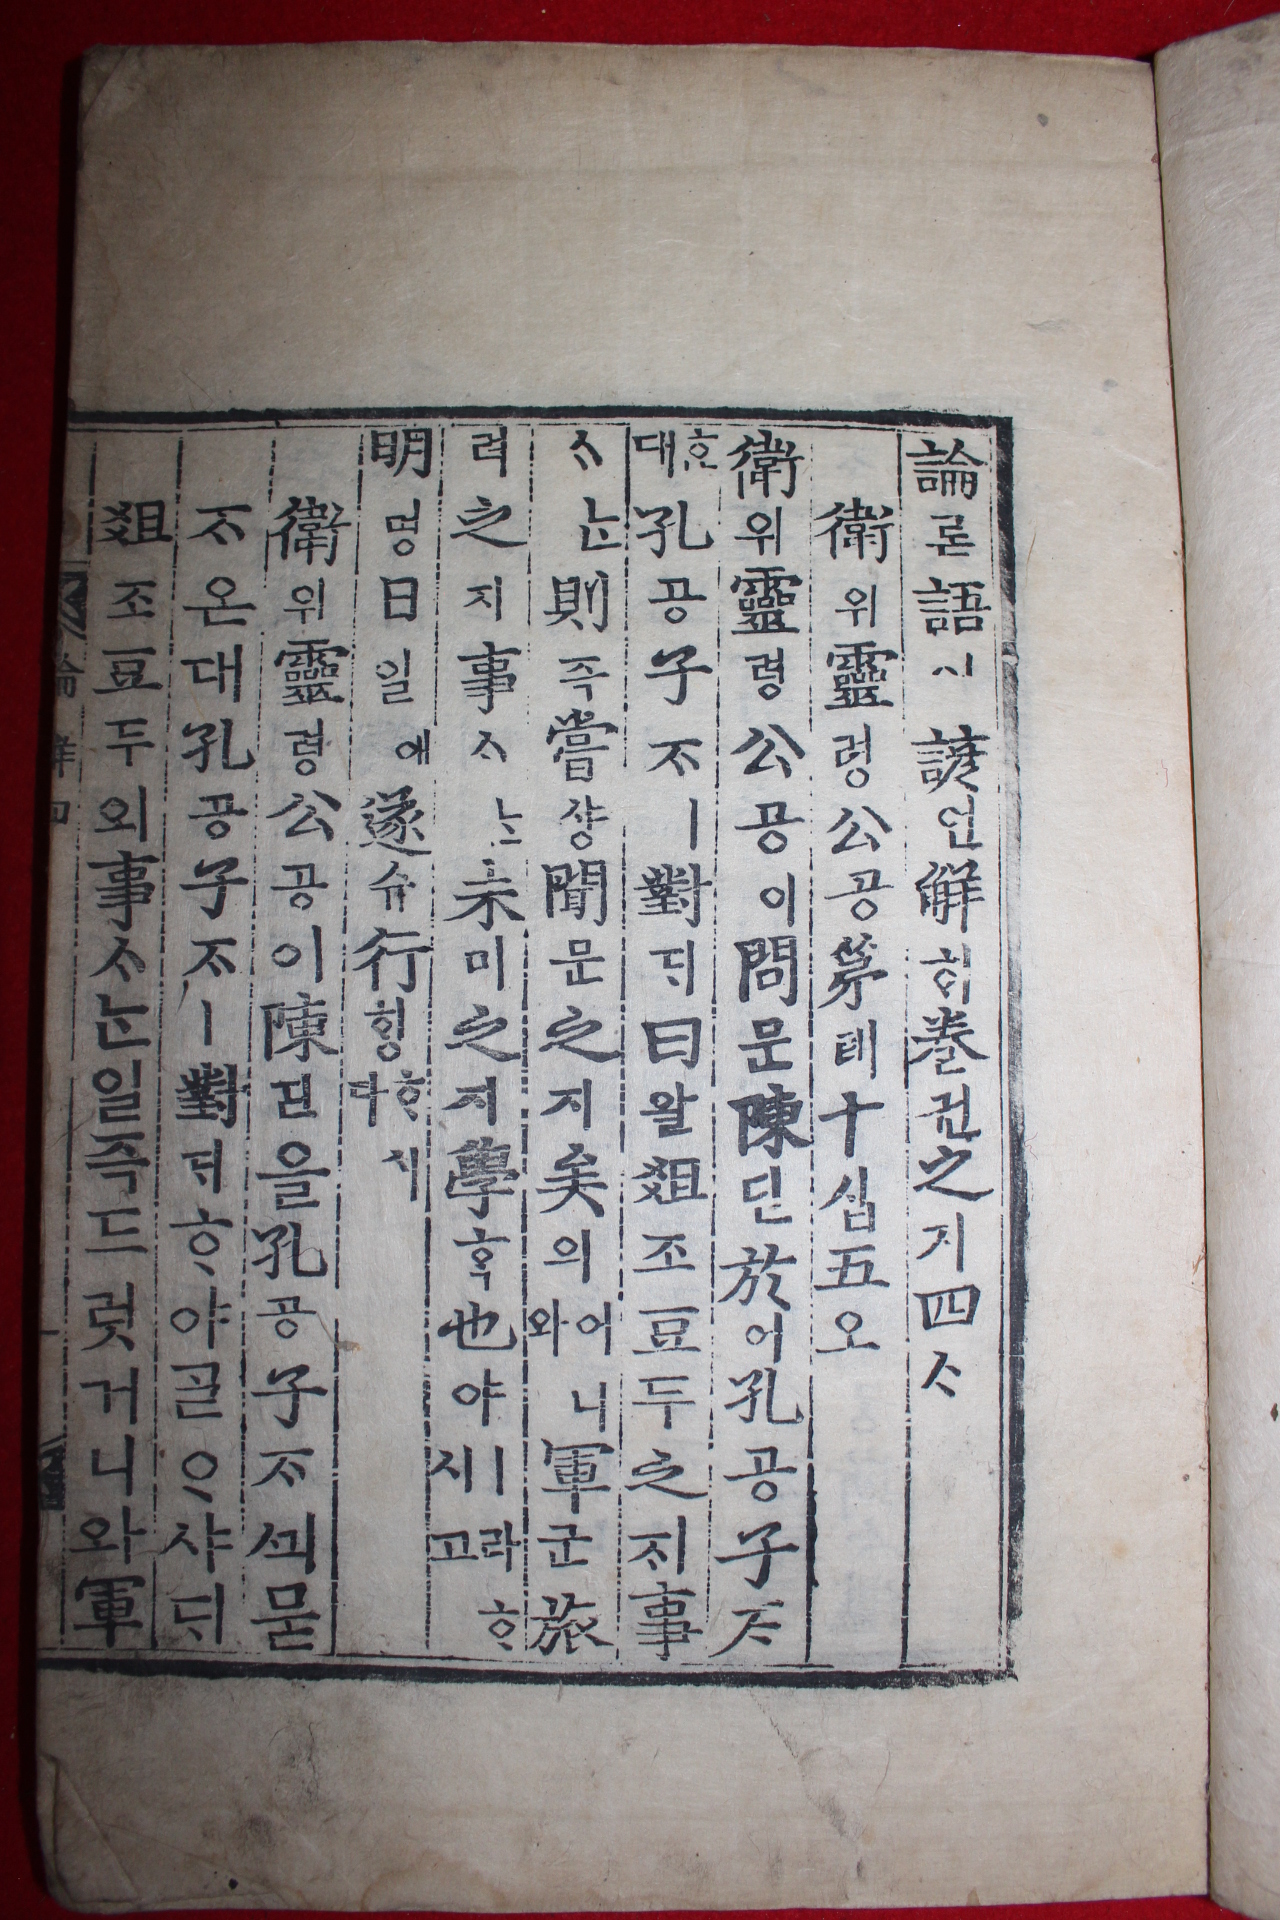 論론語어諺언解ᄒᆡ卷권之지四ᄉᆞ
衛위靈령公공第뎨十십五오
衛위靈령公공이問문陳딘於어孔공子ᄌᆞ
ᄒᆞᆫ대孔공子ᄌᆞㅣ對ᄃᆡ曰왈俎조豆두之지事
ᄉᆞᄂᆞᆫ則즉嘗샹聞문之지矣의어니와軍군旅
려之지事ᄉᆞᄂᆞᆫ未미之지學ᄒᆞᆨ也야ㅣ라ᄒᆞ시고
明명日일에遂슈行ᄒᆡᆼᄒᆞ시다
衛위靈령公공이陳딘을孔공子ᄌᆞᄭᅴ묻
ᄌᆞ온대孔공子ᄌᆞㅣ對ᄃᆡᄒᆞ야ᄀᆞᆯᄋᆞ샤ᄃᆡ
俎조豆두의事ᄉᆞᄂᆞᆫ일즉드럿거니와軍